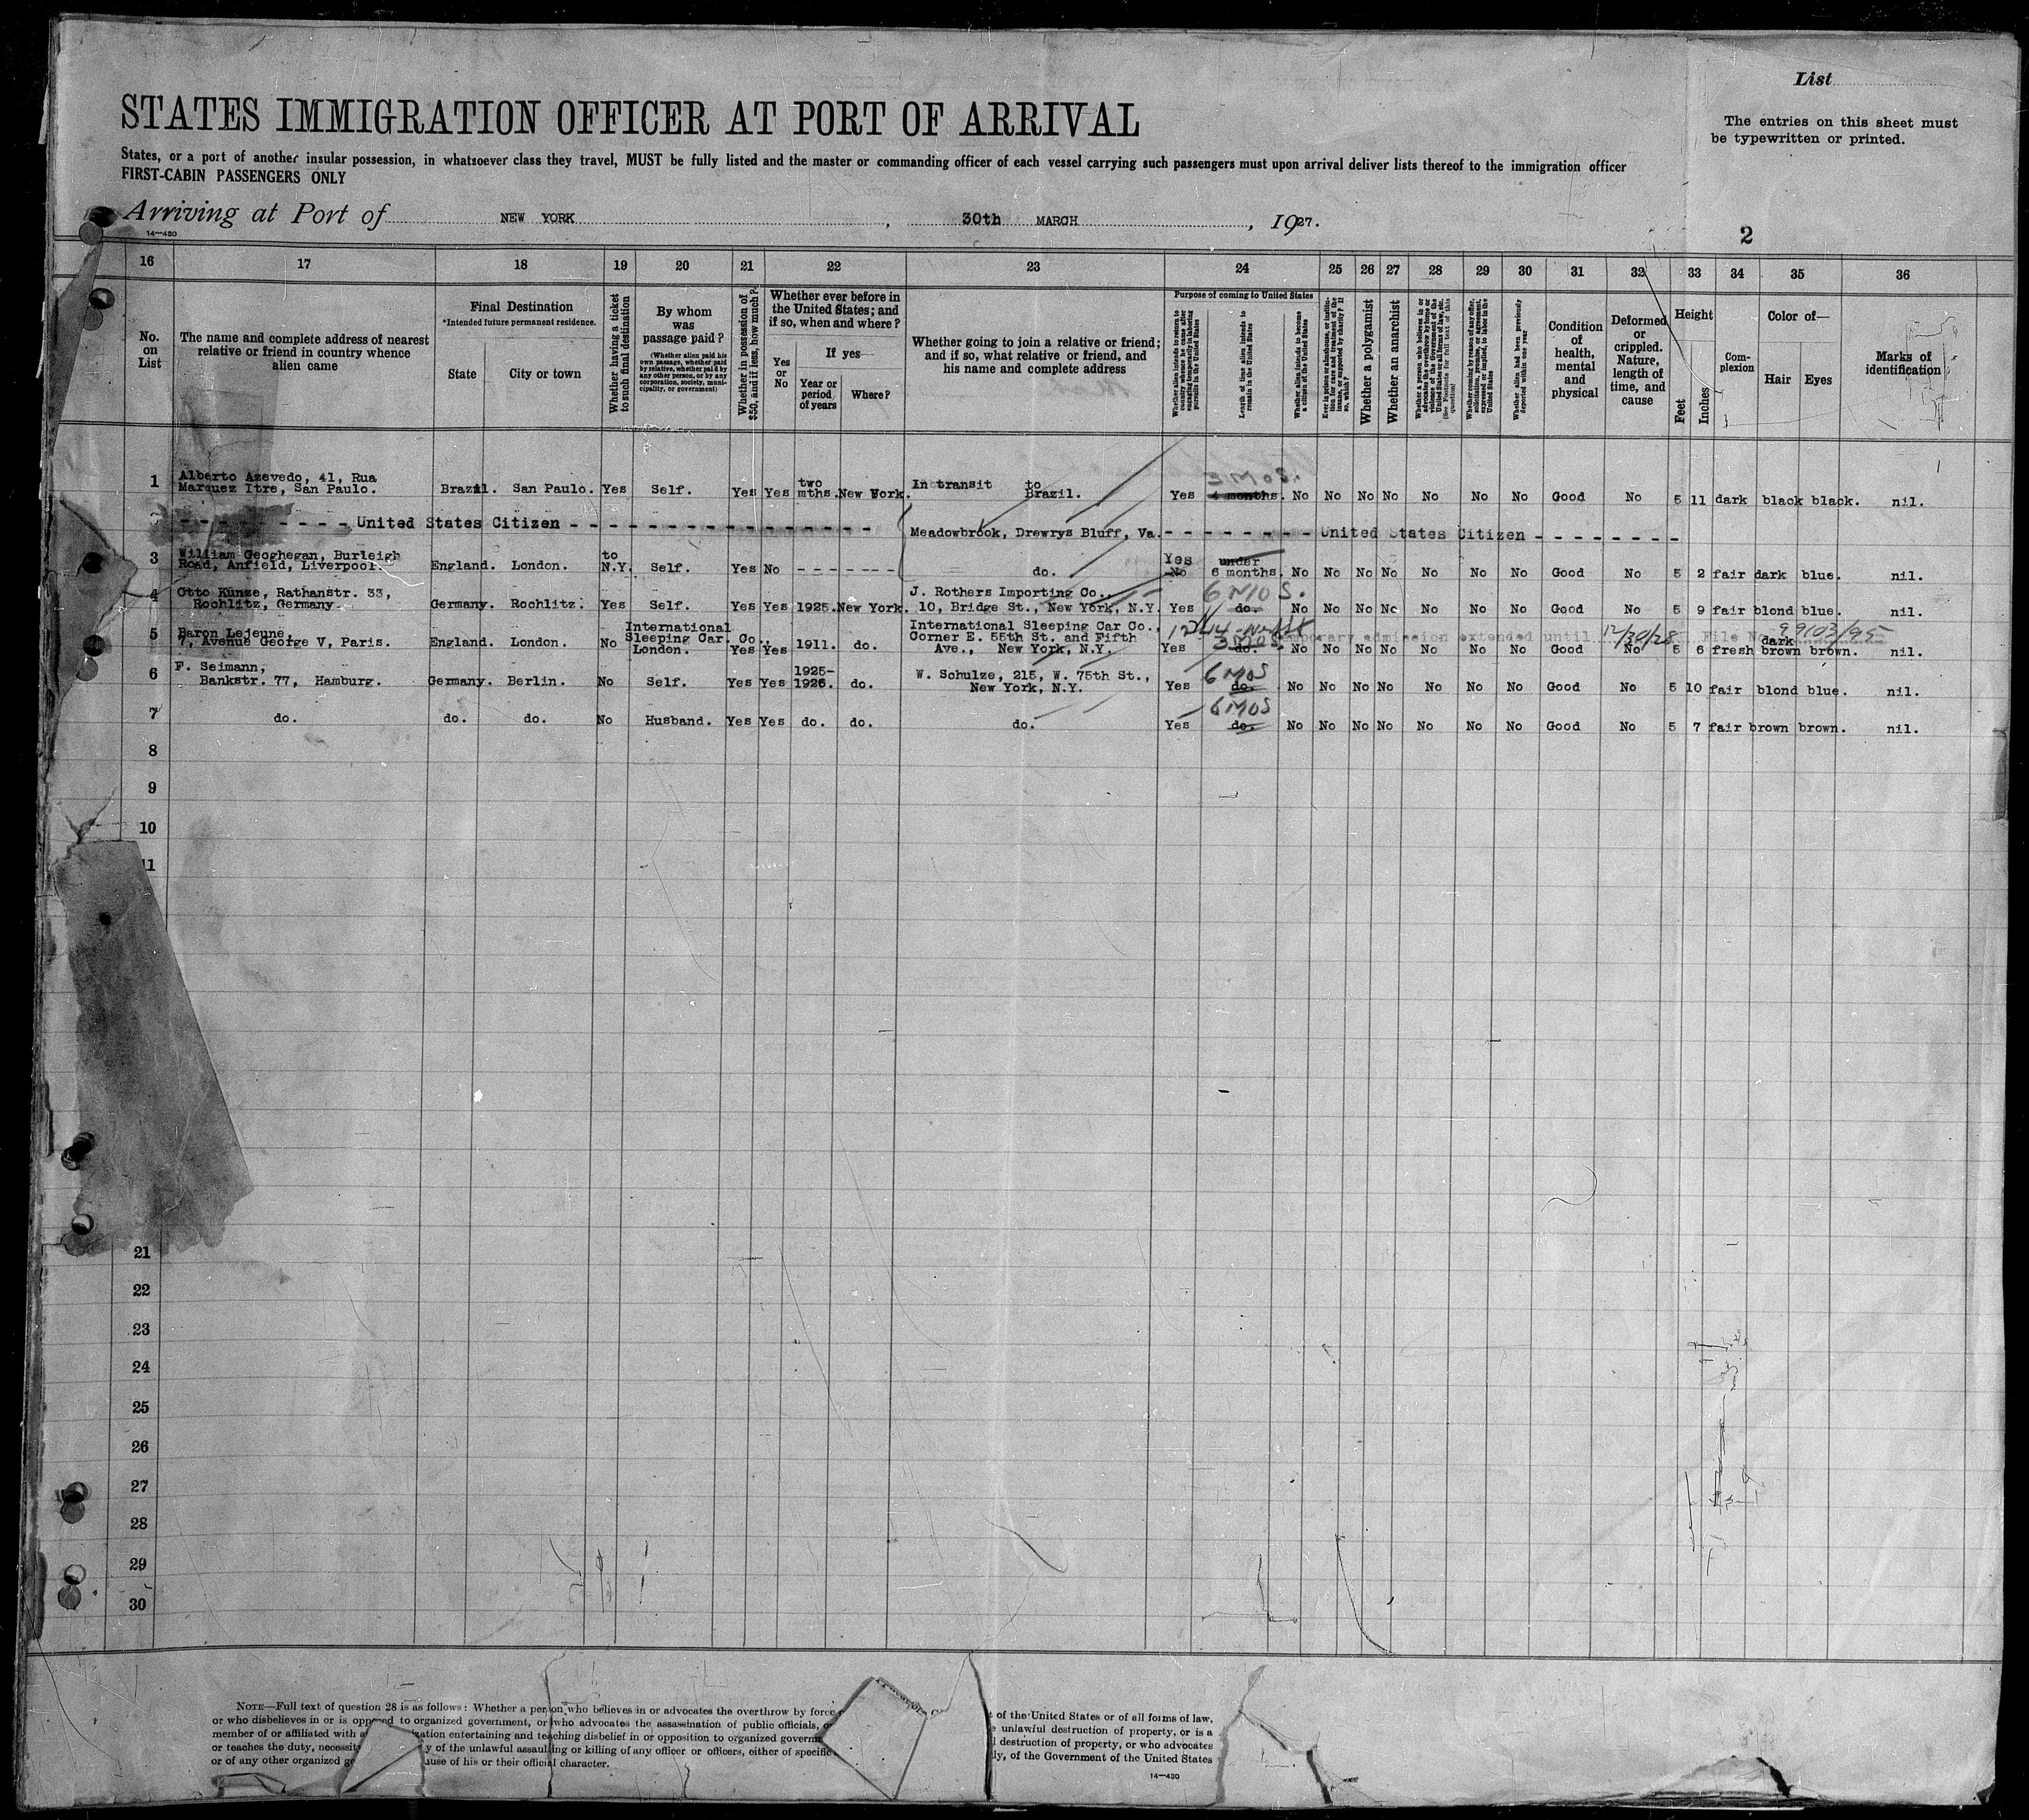 List
STATES IMMIGRATION OFFICER AT PORT OF ARRIVAL
The entries on this sheet must
be typewritten or printed.
States, or a port of another insular possession, in whatsoever class they travel, MUST be fully listed and the master or commanding officer of each vessel carrying such passengers must upon arrival deliver lists thereof to the immigration officer
FIRST-CABIN PASSENGERS ONLY
Arriving at Port of NEW YORK, 30th MARCH, 1927.
14—430
2
16 17 18 19 20 21 22 23 24 25 26 27 28 29 30 31 32 33 34 35 36
No. on List
The name and complete address of nearest relative or friend in country whence alien came
Final Destination
*Intended future permanent residence.
State
City or town
Whether having a ticket to such final destination
By whom was passage paid?
(Whether alien paid his own passage, whether paid by relative, whether paid by any other person, or by any corporation, society, municipality, or government)
Whether in possession of $50, and if less, how much?
Whether ever before in the United States; and if so, when and where?
Yes or No
If yes—
Year or period of years
Where?
Whether going to join a relative or friend; and if so, what relative or friend, and his name and complete address
Purpose of coming to United States
Length of time alien intends to remain in the United States
Whether alien intends to become a citizen of the United States
Whether a polygamist
Whether an anarchist
Whether alien had been previously deported within one year
Condition of health, mental and physical
Deformed or crippled. Nature, length of time, and cause
Height
Feet
Inches
Complexion
Color of—
Hair
Eyes
Marks of identification
3 MOS.
1 Alberto Azevedo, 41, Rua
Marquez Itre, San Paulo. Brazil. San Paulo. Yes Self. Yes Yes two mths. New York. In transit to Brazil. Yes 4 months. No No No No No No No Good No 5 11 dark black black. nil.
United States Citizen Meadowbrook, Drewrys Bluff, Va. United States Citizen
3 William Geoghegan, Burleigh
Road, Anfield, Liverpool. England. London. to N.Y. Self. Yes No do. Yes No under 6 months. No No No No No No No Good No 5 2 fair dark blue. nil.
6 MOS.
4 Otto Künze, Rathanstr. 33,
Rochlitz, Germany. Germany. Rochlitz. Yes Self. Yes Yes 1925. New York. J. Rothers Importing Co., 10, Bridge St., New York, N.Y. Yes do. No No No No No No No Good No 5 9 fair blond blue. nil.
temporary admission extended until 12/30/28 File No. 99103/95
3 MOS.
5 Baron Lejeune,
7, Avenue George V, Paris. England. London. No International Sleeping Car. Co., London. Yes Yes 1911. do. International Sleeping Car Co., Corner E. 55th St. and Fifth Ave., New York, N.Y. Yes do. No No No No No No No Good No 5 6 fresh dark brown brown. nil.
6 MOS
6 F. Seimann,
Bankstr. 77, Hamburg. Germany. Berlin. No Self. Yes Yes 1925-1926. do. W. Schulze, 215, W. 75th St., New York, N.Y. Yes do. No No No No No No No Good No 5 10 fair blond blue. nil.
6 MOS
7 do. do. do. No Husband. Yes Yes do. do. do. Yes do. No No No No No No No Good No 5 7 fair brown brown. nil.
8
9
10
11
21
22
23
24
25
26
27
28
29
30
NOTE—Full text of question 28 is as follows: Whether a person who believes in or advocates the overthrow by force t of the United States or of all forms of law,
or who disbelieves in or is opposed to organized government, or who advocates the assassination of public officials, unlawful destruction of property, or is a
member of or affiliated with entertaining and teaching disbelief in or opposition to organized destruction of property, or who advocates
or teaches the duty, y of the unlawful assaulting or killing of any officer or officers, either of specific ly, of the Government of the United States
or of any other organized ause of his or their official character.
14—430